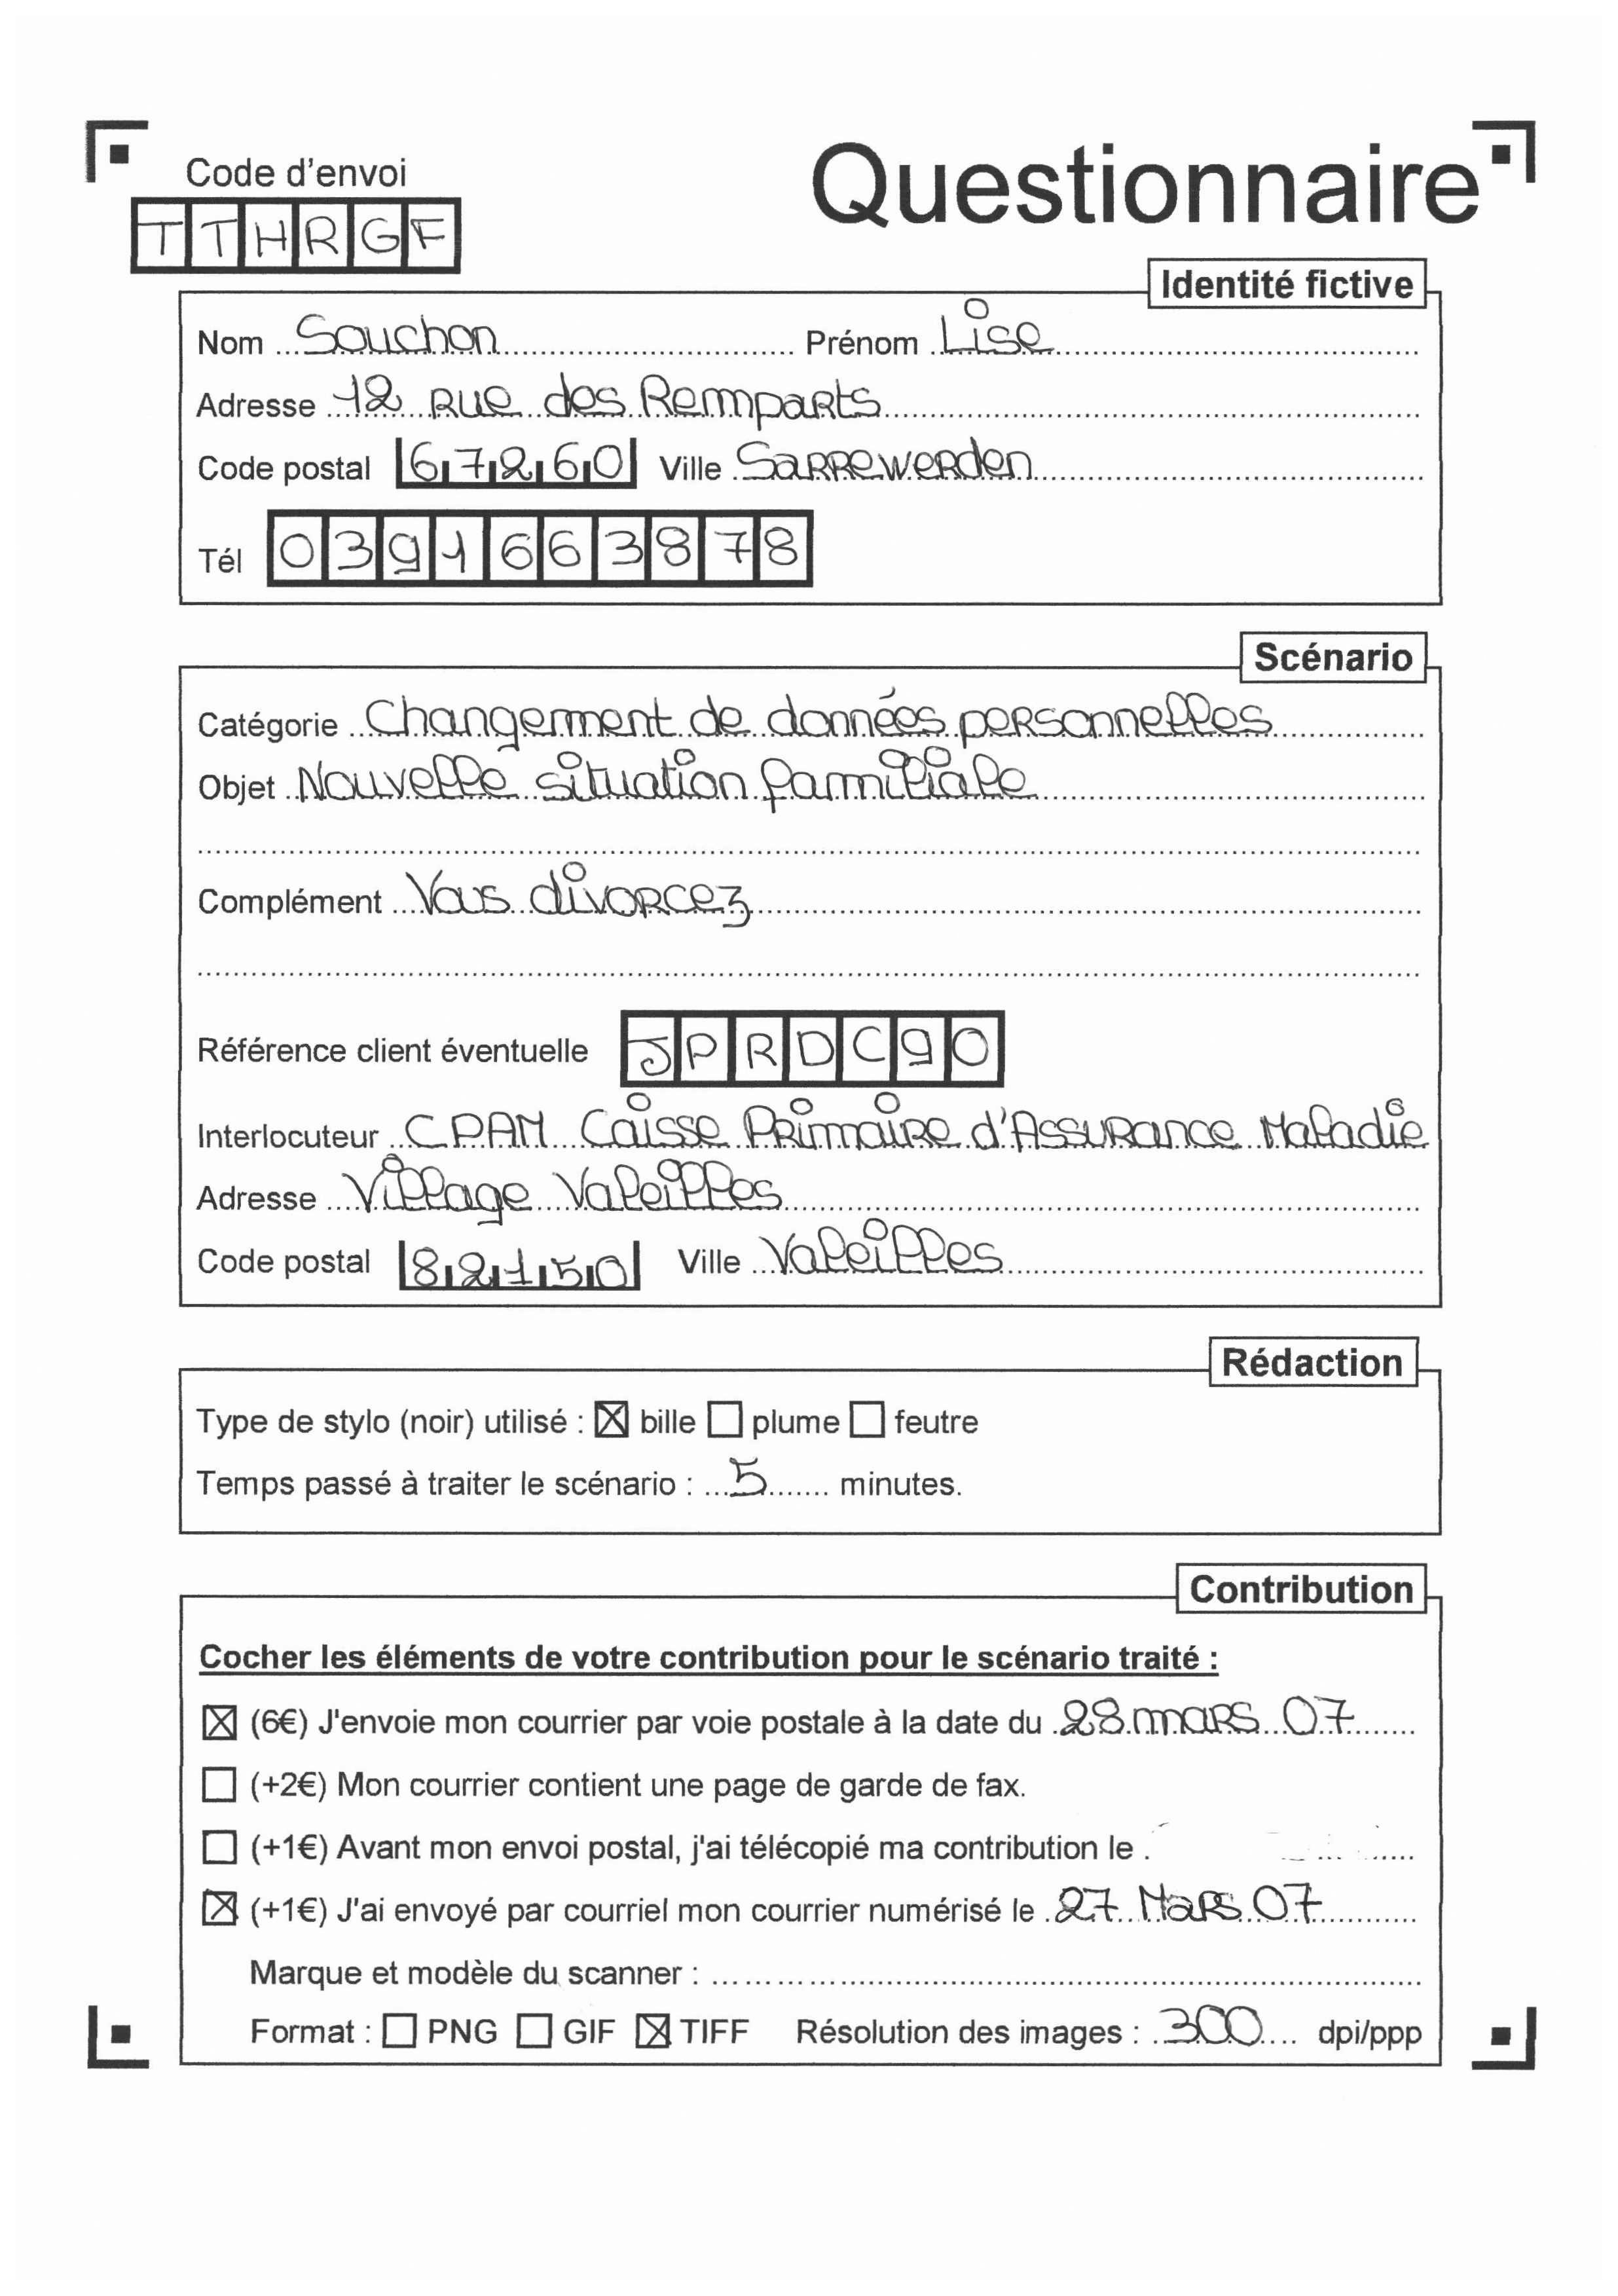 Code d'envoi
Questionnaire
TTHRGF
Identité fictive
Nom Souchon Prénom Lise
Adresse 12 Rue des Remparts
Code postal 67260 Ville Sarrewerden
Tél 0391663878
Scénario
Catégorie Changement de données personnelles
Objet Nouvelle situation familiale
Complément Vous divorcez
Référence client éventuelle JPRDC90
Interlocuteur CPAM Caisse Primaire d'Assurance Maladie
Adresse Village Valeilles
Code postal 82150 Ville Valeilles
Rédaction
Type de stylo (noir) utilisé : ☒ bille ☐ plume ☐ feutre
Temps passé à traiter le scénario : 5 minutes.
Contribution
Cocher les éléments de votre contribution pour le scénario traité :
☒ (6€) J'envoie mon courrier par voie postale à la date du 28 mars 07
☐ (+2€) Mon courrier contient une page de garde de fax.
☐ (+1€) Avant mon envoi postal, j'ai télécopié ma contribution le
☒ (+1€) J'ai envoyé par courriel mon courrier numérisé le 27 Mars 07
Marque et modèle du scanner :
Format : ☐ PNG ☐ GIF ☒ TIFF Résolution des images : 300 dpi/ppp